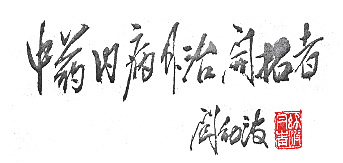 中药内病外治开拓者
关幼波